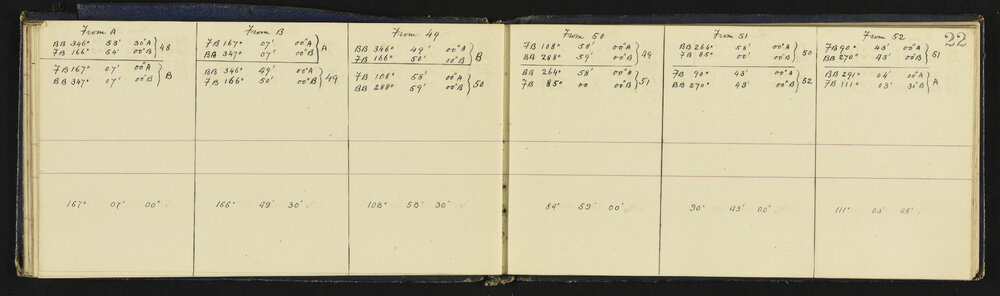 22
From A
BB 346° 53' 30"A } 48
FB 166° 54' 00"B
FB 167° 07' 00"A } B
BB 347° 07' 00"B
167° 07' 00"
From B
FB 167° 07' 00"A } A
BB 347° 07' 00"B
BB 346° 49' 00"A } 49
FB 166° 50' 00"B
166° 49' 30"
From 49
BB 346° 49' 00"A } B
FB 166° 50' 00"B
FB 108° 58' 00"A } 50
BB 288° 59' 00"B
108° 58' 30"
From 50
FB 108° 58' 00"A } 49
BB 288° 59' 00"B
BB 264° 58' 00"A } 51
FB 85° 00 00"B
84° 59' 00"
From 51
BB 264° 58' 00"A } 50
FB 85° 00' 00"B
FB 90° 43' 00"A } 52
BB 270° 43' 00"B
90° 43' 00"
From 52
FB 90° 43' 00"A } 51
BB 270° 43' 00"B
BB 291° 04' 00"A } A
FB 111° 03' 30"B
111° 03' 45"